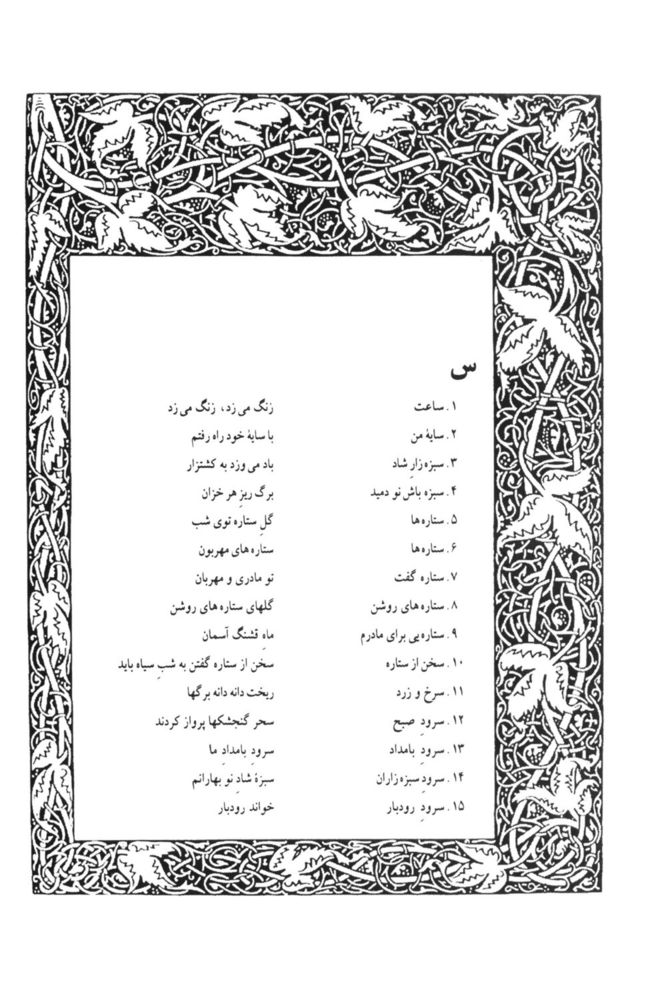 س
۱. ساعت زنگ می زد، زنگ می زد
۲. سایهٔ من با سایهٔ خود راه رفتم
۳. سبزه زارِ شاد باد می وزد به کشتزار
۴. سبزه باش نو دمید برگ ریزِ هر خزان
۵. ستاره ها گلِ ستاره توی شب
۶. ستاره ها ستاره های مهربون
۷. ستاره گفت تو مادری و مهربان
۸. ستاره های روشن گلهای ستاره های روشن
۹. ستاره یی برای مادرم ماهِ قشنگ آسمان
۱۰. سخن از ستاره سخن از ستاره گفتن به شبِ سیاه باید
۱۱. سرخ و زرد ریخت دانه دانه برگها
۱۲. سرودِ صبح سحر گنجشکها پرواز کردند
۱۳. سرودِ بامداد سرودِ بامدادِ ما
۱۴. سرودِ سبزه زاران سبزهٔ شاد نو بهارانم
۱۵. سرودِ رودبار خواند رودبار